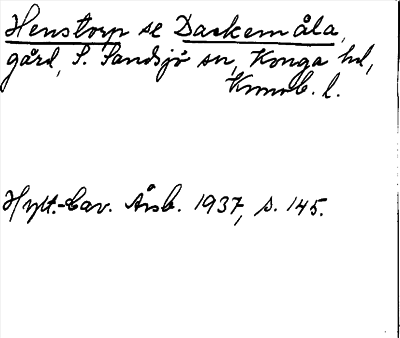 Henstorp se Dackemåla,
gård, S. Sandsjö sn, Konga hd,
Kronob. l.
Hylt.-Cav. Årsb. 1937, s. 145.